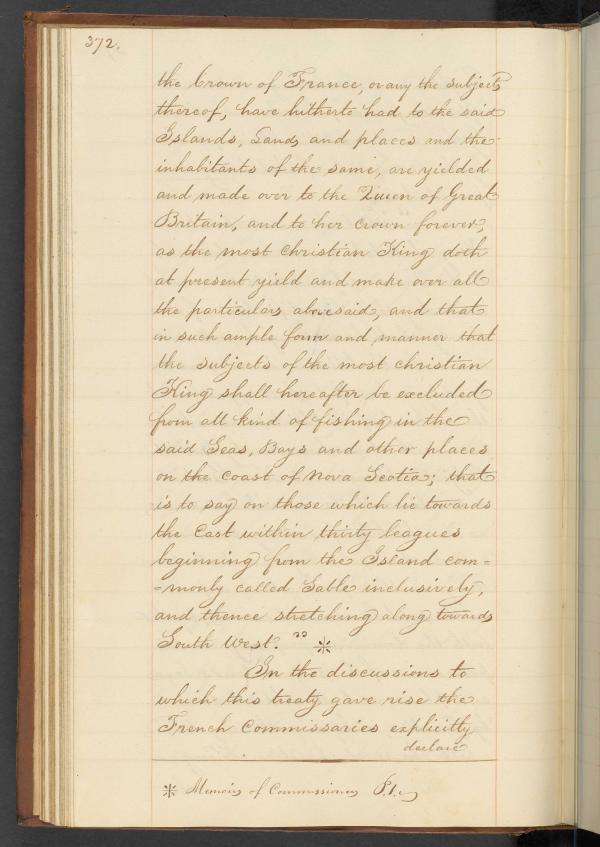 372.
the Crown of France, or any the subjects
thereof, have hitherto had to the said
Islands, Lands and places and the
inhabitants of the same, are yielded
and made over to the Queen of Great
Britain, and to her crown forever,
as the most Christian King doth
at present yield and make over all
the particulars abovesaid, and that
in such ample form and manner that
the subjects of the most christian
King shall hereafter be excluded
from all kind of fishing in the
said Seas, Bays and other places
on the coast of Nova Scotia; that
is to say on those which lie towards
the East within thirty leagues
beginning from the Island com=
=monly called Sable inclusively,
and thence stretching along towards
South West." *
In the discussions to
which this treaty gave rise the
French Commissaries explicitly
declare
* Memoirs of Commissioners